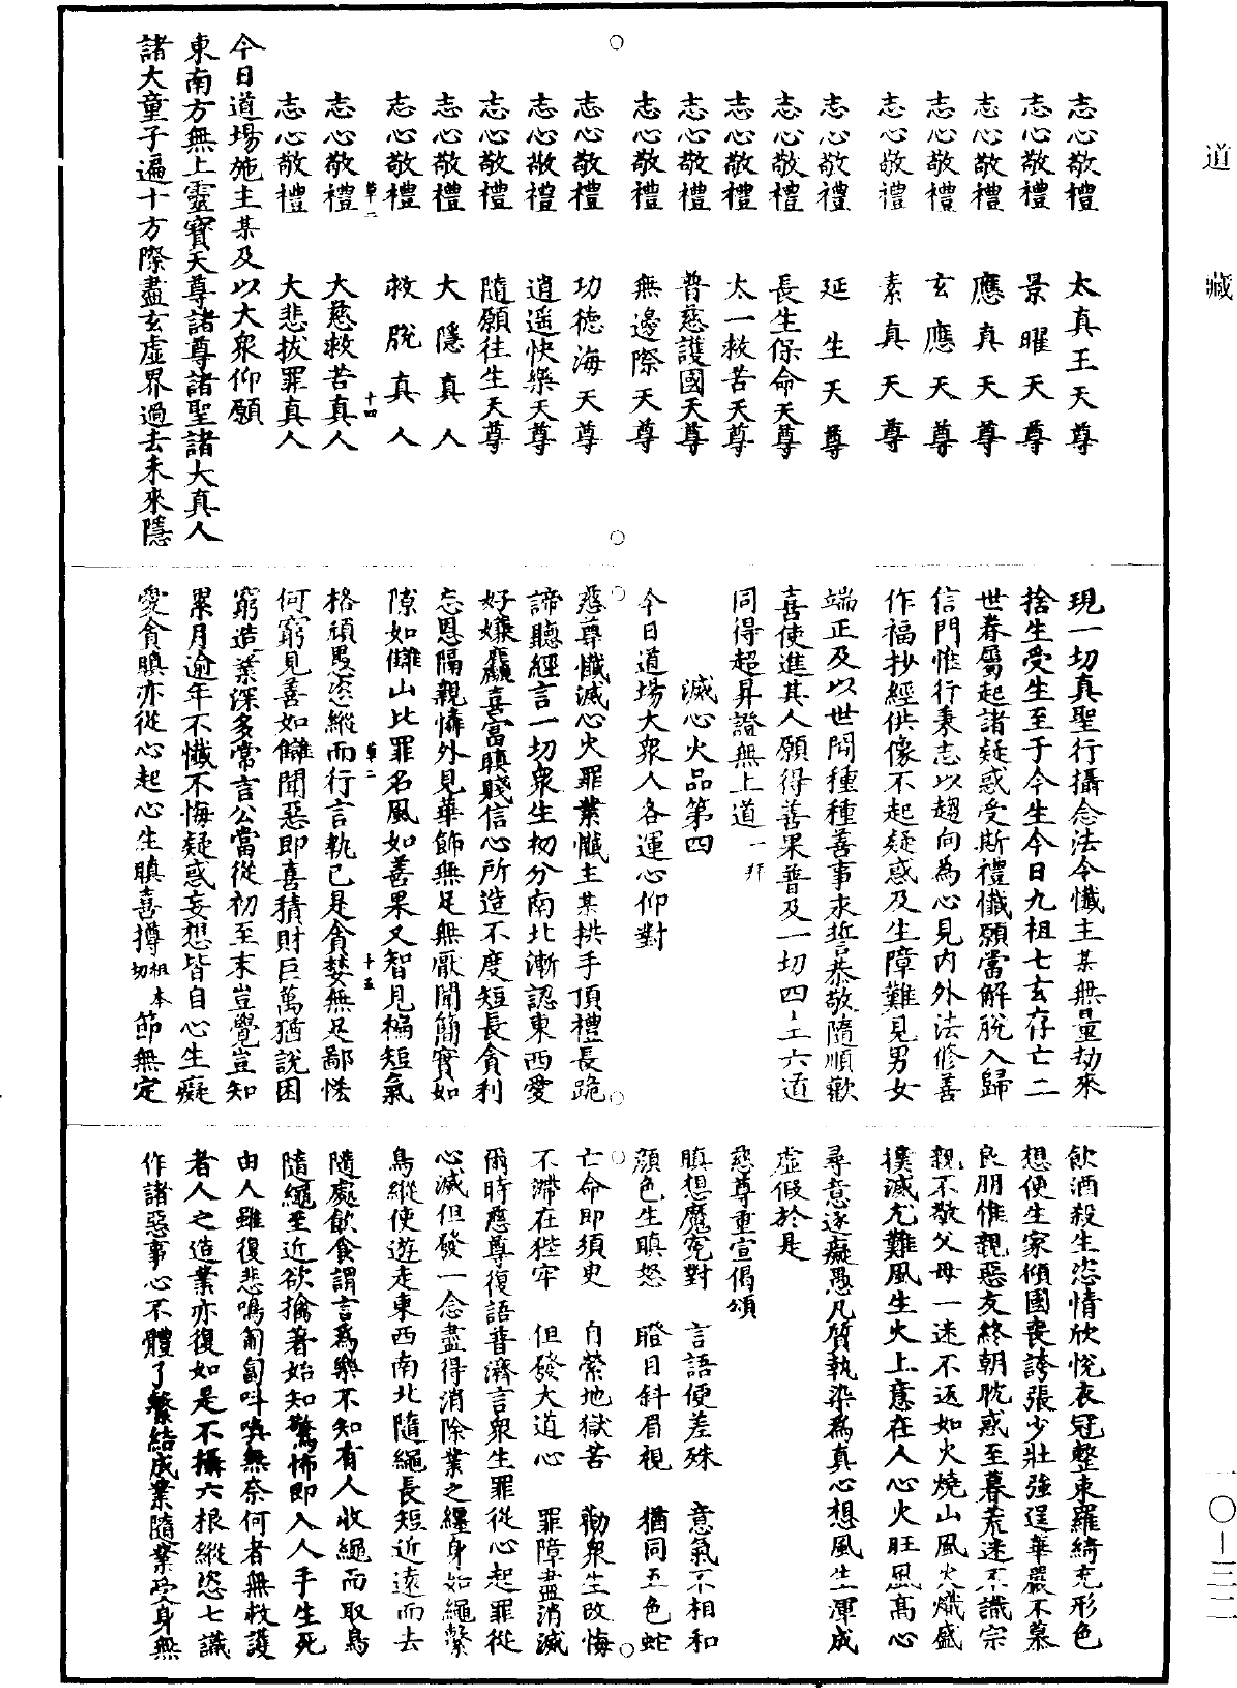 道藏
志心敬禮　太真王天尊
志心敬禮　景曜天尊
志心敬禮　應真天尊
志心敬禮　玄應天尊
志心敬禮　素真天尊
志心敬禮　延生天尊
志心敬禮　長生保命天尊
志心敬禮　太一救苦天尊
志心敬禮　普慈護國天尊
志心敬禮　無邊際天尊
志心敬禮　功德海天尊
志心敬禮　逍遥快樂天尊
志心敬禮　隨願往生天尊
志心敬禮　大隱真人
志心敬禮　救脫真人
草二　十四
志心敬禮　大慈救苦真人
志心敬禮　大悲拔罪真人
今日道場施主某及以大衆仰願
東南方無上靈寳天尊諸尊諸聖諸大真人
諸大童子遍十方際盡玄虛界過去未來隱
現一切真聖行攝念法令懺主某無量劫來
捨生受生至于今生今日九祖七玄存亡二
世眷屬起諸疑惑受斯禮懺願當解脫入歸
信門惟行秉志以趨向為心見內外法修善
作福抄經供像不起疑惑及生障難見男女
端正及以世間種種善事求哲恭敬隨順歡
喜使進其人願得善果普及一切四生六道
同得超昇證無上道一拜
滅心火品第四
今日道場大衆人各運心仰對
慈尊懺滅心火罪業懺主某拱手頂禮長跪
諦聽經言一切衆生初分南北漸認東西愛
好嫌麤喜富瞋賤信心所造不度短長貪利
忘恩隔親憐外見華飾無足無厭聞簡實如
隙如讎山比罪名風如善果又智見褊短氣
草二　十五
格頑愚恣縱而行言執已是貪婪無足鄙恡
何窮見善如讎聞惡即喜積財巨萬猶說困
窮造業深多常言公當從初至末豈覺豈知
累月逾年不懺不悔疑惑妄想皆自心生癡
愛貪瞋亦從心起心生瞋喜撙祖本切節無定
飲酒殺生恣情欣悅衣冠整束羅綺充形色
想便生家傾國喪誇張少壯強逞華嚴不慕
良朋惟親惡友終朝耽惑至暮荒迷不識宗
親不敬父母一迷不返如火燒山風火熾盛
撲滅尤難風生火上意在人心火旺風高心
尋意逐癡愚凡質執染為真心想風生渾成
虛假於是
慈尊重宣偈頌
瞋想魔寃對　言語便差殊　意氣不相和
顔色生瞋怒　瞪目斜眉視　猶同五色蛇
亡命即須臾　自縈地獄苦　勸衆生改悔
不滯在狴牢　但發大道心　罪障盡消滅
爾時慈尊復語普濟言衆生罪從心起罪從
心滅但發一念盡得消除業之纏身如繩繫
鳥縱使遊走東西南北隨繩長短近遠而去
隨處飲食謂言為樂不知有人收繩而取鳥
隨繩至近欲擒著始知驚怖即入人手生死
由人雖復悲鳴匍匐呌喚無奈何者無救護
者人之造業亦復如是不攝六根縱恣七識
作諸惡事心不體了繫結成業隨業受身無
一〇—三一二